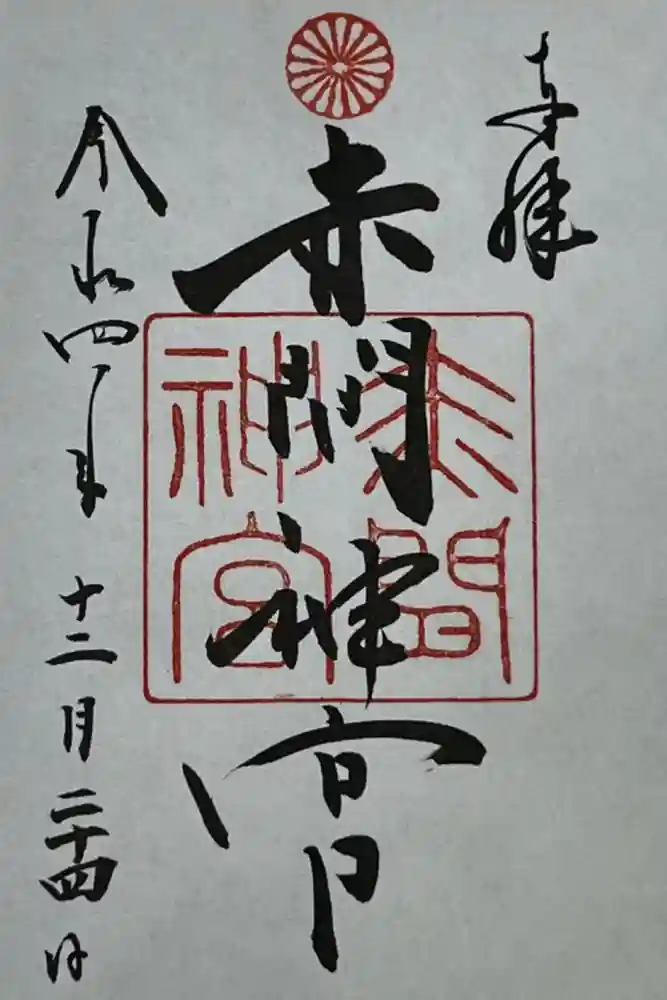 奉拝
赤間神宮
赤間神宮
令和四年十二月二十四日